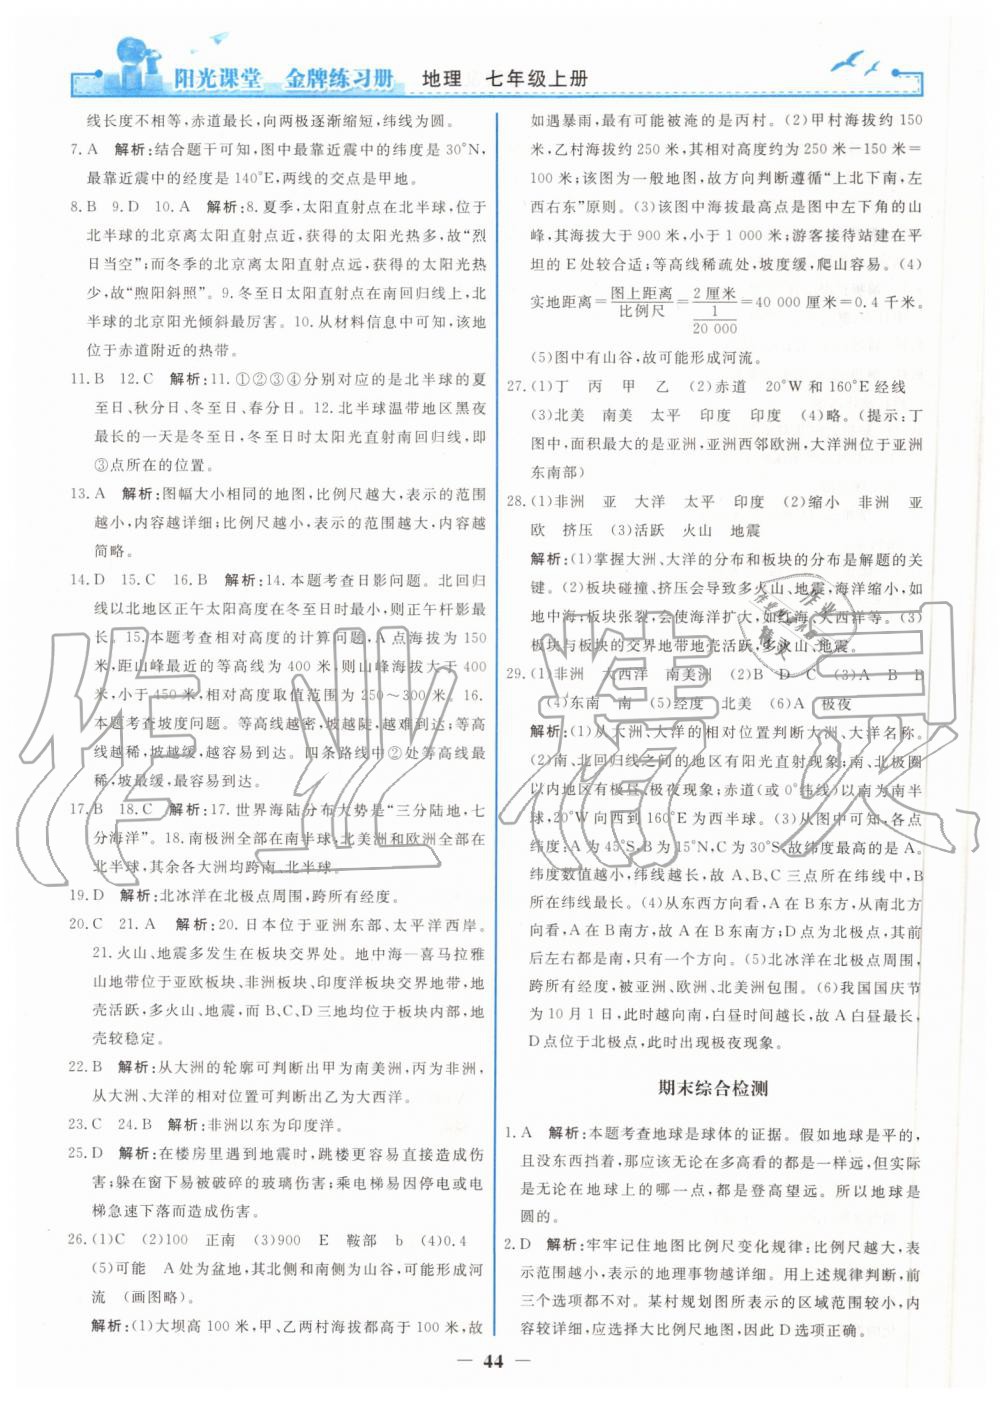 阳光课堂 金牌练习册 地理 七年级上册
线长度不相等,赤道最长,向两极逐渐缩短,纬线为圆。
7. A 解析:结合题干可知,图中最靠近震中的纬度是30°N,
最靠近震中的经度是140°E,两线的交点是甲地。
8. B 9. D 10. A 解析:8. 夏季,太阳直射点在北半球,位于
北半球的北京离太阳直射点近,获得的太阳光热多,故“烈
日当空”;而冬季的北京离太阳直射点远,获得的太阳光热
少,故“煦阳斜照”。9. 冬至日太阳直射点在南回归线上,北
半球的北京阳光倾斜最厉害。10. 从材料信息中可知,该地
位于赤道附近的热带。
11. B 12. C 解析:11. ①②③④分别对应的是北半球的夏
至日、秋分日、冬至日、春分日。12. 北半球温带地区黑夜
最长的一天是冬至日,冬至日时太阳光直射南回归线,即
③点所在的位置。
13. A 解析:图幅大小相同的地图,比例尺越大,表示的范围
越小,内容越详细;比例尺越小,表示的范围越大,内容越
简略。
14. D 15. C 16. B 解析:14. 本题考查日影问题。北回归
线以北地区正午太阳高度在冬至日时最小,则正午杆影最
长。15. 本题考查相对高度的计算问题,A点海拔为150
米,距山峰最近的等高线为400米,则山峰海拔大于400
米,小于450米,相对高度取值范围为250～300米。16.
本题考查坡度问题。等高线越密,坡越陡,越难到达;等高
线越稀,坡越缓,越容易到达。四条路线中②处等高线最
稀,坡最缓,最容易到达。
17. B 18. C 解析:17. 世界海陆分布大势是“三分陆地,七
分海洋”。18. 南极洲全部在南半球,北美洲和欧洲全部在
北半球,其余各大洲均跨南、北半球。
19. D 解析:北冰洋在北极点周围,跨所有经度。
20. C 21. A 解析:20. 日本位于亚洲东部、太平洋西岸。
21. 火山、地震多发生在板块交界处。地中海—喜马拉雅
山地带位于亚欧板块、非洲板块、印度洋板块交界地带,地
壳活跃,多火山、地震,而B、C、D三地均位于板块内部,地
壳较稳定。
22. B 解析:从大洲的轮廓可判断出甲为南美洲,丙为非洲,
从大洲、大洋的相对位置可判断出乙为大西洋。
23. C 24. B 解析:非洲以东为印度洋。
25. D 解析:在楼房里遇到地震时,跳楼更容易直接造成伤
害;躲在窗下易被破碎的玻璃伤害;乘电梯易因停电或电
梯急速下落而造成伤害。
26. (1)C (2)100 正南 (3)900 E 鞍部 b (4)0.4
(5)可能 A处为盆地,其北侧和南侧为山谷,可能形成河
流 (画图略)。
解析:(1)大坝高100米,甲、乙两村海拔都高于100米,故
如遇暴雨,最有可能被淹的是丙村。(2)甲村海拔约150
米,乙村海拔约250米,其相对高度约为250米－150米＝
100米;该图为一般地图,故方向判断遵循“上北下南,左
西右东”原则。(3)该图中海拔最高点是图中左下角的山
峰,其海拔大于900米,小于1 000米;游客接待站建在平
坦的E处较合适;等高线稀疏处,坡度缓,爬山容易。(4)
实地距离＝图上距离/比例尺＝2厘米/(1/20 000)＝40 000厘米＝0.4千米。
(5)图中有山谷,故可能形成河流。
27. (1)丁 丙 甲 乙 (2)赤道 20°W和160°E经线
(3)北美 南美 太平 印度 印度 (4)略。(提示:丁
图中,面积最大的是亚洲,亚洲西邻欧洲,大洋洲位于亚洲
东南部)
28. (1)非洲 亚 大洋 太平 印度 (2)缩小 非洲 亚
欧 挤压 (3)活跃 火山 地震
解析:(1)掌握大洲、大洋的分布和板块的分布是解题的关
键。(2)板块碰撞、挤压会导致多火山、地震,海洋缩小,如
地中海;板块张裂,会使海洋扩大,如红海、大西洋等。(3)
板块与板块的交界地带地壳活跃,多火山、地震。
29. (1)非洲 大西洋 南美洲 (2)B D C (3)A B B
(4)东南 南 (5)经度 北美 (6)A 极夜
解析:(1)从大洲、大洋的相对位置判断大洲、大洋名称。
(2)南、北回归线之间的地区有阳光直射现象;南、北极圈
以内地区有极昼、极夜现象;赤道(或0°纬线)以南为南半
球,20°W向西到160°E为西半球。(3)从图中可知,各点
纬度:A为45°S,B为15°N,C为30°S,故纬度最高的是A。
纬度数值越小,纬线越长,A、B、C三点所在纬线中,B
所在纬线最长。(4)从东西方向看,A在B东方,从南北方
向看,A在B南方,故A在B东南方;D点为北极点,其前
后左右方向,只有一个方向。(5)北冰洋在北极点周围,
跨所有经度,被亚洲、欧洲、北美洲包围。(6)我国国庆节
为10月1日,此时越向南,白昼时间越长,故A白昼最长,
D点位于北极点,此时出现极夜现象。
期末综合检测
1. A 解析:本题考查地球是球体的证据。假如地球是平的,
且没东西挡着,那应该无论在多高看的都是一样远,但实际
是无论在地球上的哪一点,都是登高望远。所以地球是
圆的。
2. D 解析:牢牢记住地图比例尺变化规律:比例尺越大,表
示范围越小,表示的地理事物越详细。用上述规律判断,前
三个选项都不对。某村规划图所表示的区域范围较小,内
容较详细,应选择大比例尺地图,因此D选项正确。
— 44 —
作业精灵